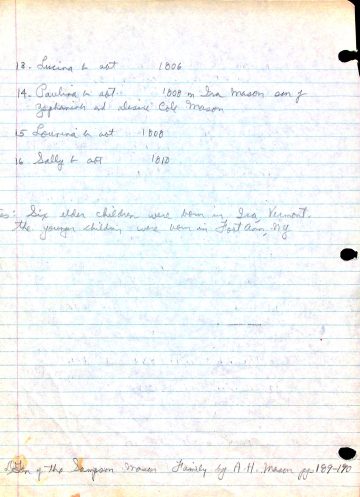 13. Lucina b abt 1806
14. Paulina b abt 1808 m Ira Mason son of
Zephaniah and Desire Cole Mason
15 Lourina b abt 1808
16 Sally b abt 1810
es: Six elder children were born in Ira, Vermont.
The younger children were born in Fort Ann, NY
Gen of the Sampson Mason Family by A. H. Mason pg 189-190